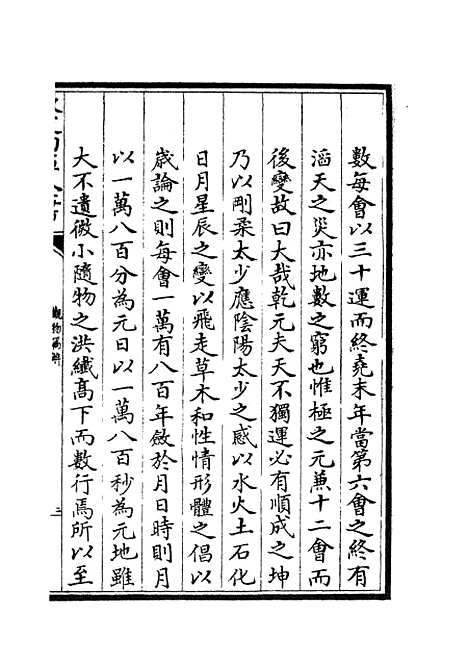 數每會以三十運而終堯末年當第六會之終有
滔天之災亦地數之窮也惟極之元兼十二會而
後變故曰大哉乾元夫天不獨運必有順成之坤
乃以剛柔太少應陰陽太少之感以水火土石化
日月星辰之變以飛走草木和性情形體之倡以
歲論之則每會一萬有八百年斂於月日時則月
以一萬八百分為元日以一萬八百秒為元地雖
大不遺微小隨物之洪纖高下而數行焉所以至
觀物篇解
二